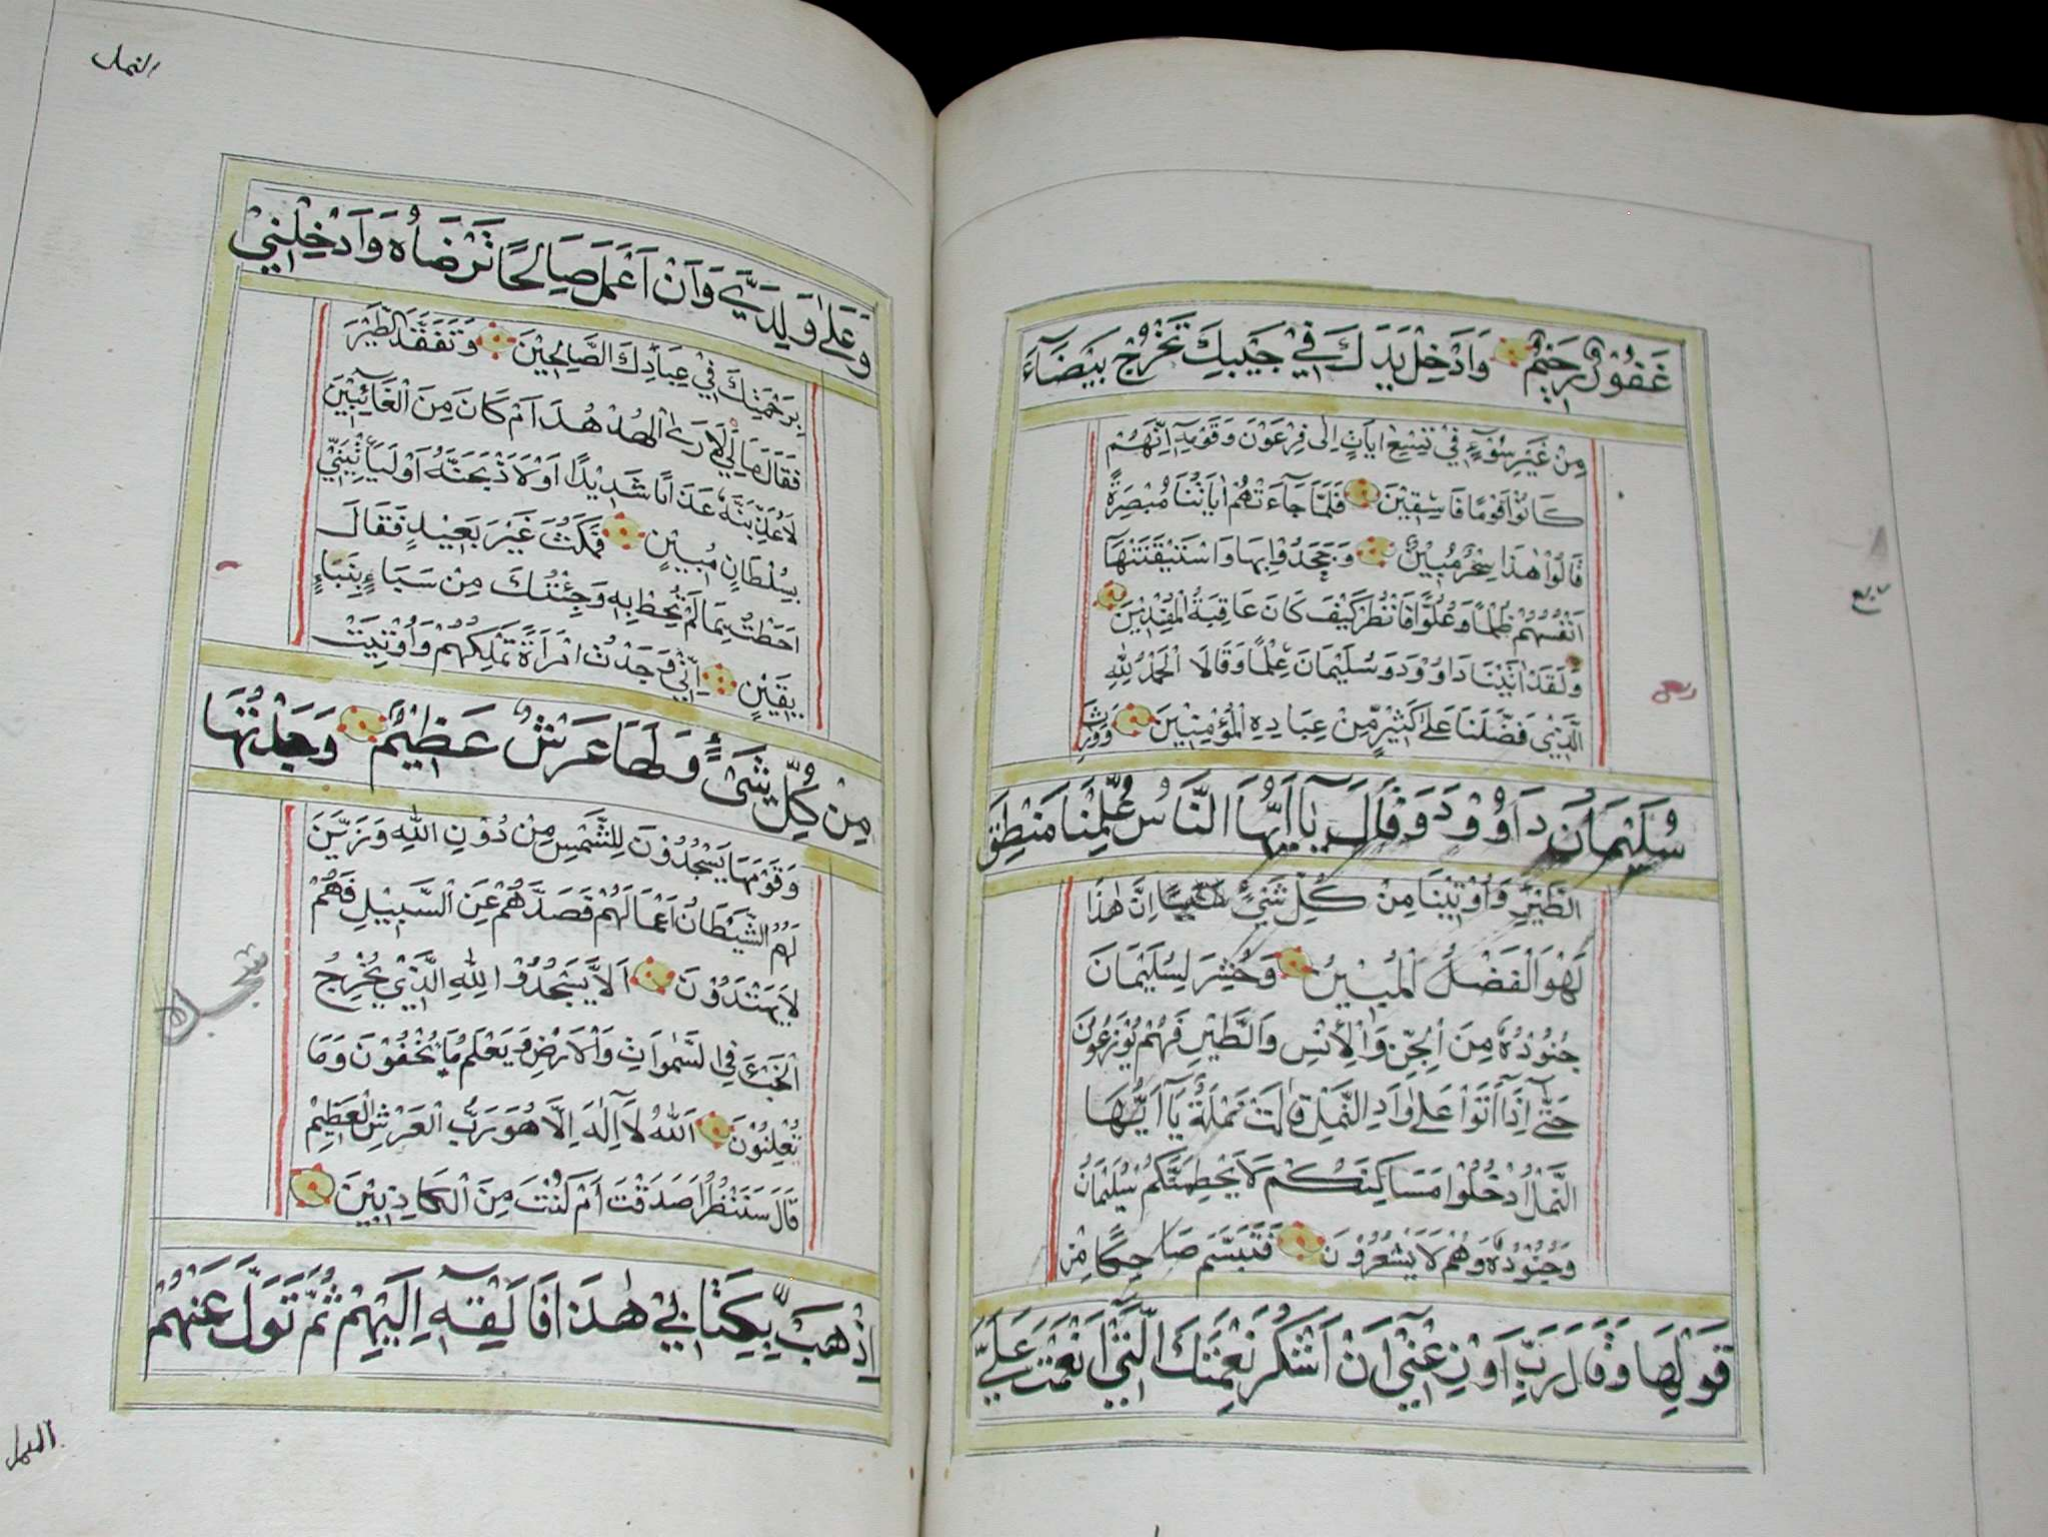 غَفُوْرٌ رَحِيْمٌ وَاَدْخِلْ يَدَكَ فِيْ جَيْبِكَ تَخْرُجْ بَيْضَآءَ
مِنْ غَيْرِ سُوْٓءٍ فِيْ تِسْعِ اٰيَاتٍ اِلٰى فِرْعَوْنَ وَقَوْمِهٖٓ اِنَّهُمْ
كَانُوْا قَوْمًا فَاسِقِيْنَ فَلَمَّا جَآءَتْهُمْ اٰيَاتُنَا مُبْصِرَةً
قَالُوْا هٰذَا سِحْرٌ مُبِيْنٌ وَجَحَدُوْا بِهَا وَاسْتَيْقَنَتْهَآ
اَنْفُسُهُمْ ظُلْمًا وَعُلُوًّا فَانْظُرْ كَيْفَ كَانَ عَاقِبَةُ الْمُفْسِدِيْنَ
وَلَقَدْ اٰتَيْنَا دَاوُوْدَ وَسُلَيْمَانَ عِلْمًا وَقَالَا الْحَمْدُ لِلّٰهِ
الَّذِيْ فَضَّلَنَا عَلٰى كَثِيْرٍ مِّنْ عِبَادِهِ الْمُؤْمِنِيْنَ وَوَرِثَ
سُلَيْمَانُ دَاوُوْدَ وَقَالَ يَآ اَيُّهَا النَّاسُ عُلِّمْنَا مَنْطِقَ
الطَّيْرِ وَاُوْتِيْنَا مِنْ كُلِّ شَيْءٍ اِنَّ هٰذَا
لَهُوَ الْفَضْلُ الْمُبِيْنُ وَحُشِرَ لِسُلَيْمَانَ
جُنُوْدُهٗ مِنَ الْجِنِّ وَالْاِنْسِ وَالطَّيْرِ فَهُمْ يُوْزَعُوْنَ
حَتّٰٓى اِذَآ اَتَوْا عَلٰى وَادِ النَّمْلِ قَالَتْ نَمْلَةٌ يَآ اَيُّهَا
النَّمْلُ ادْخُلُوْا مَسَاكِنَكُمْ لَا يَحْطِمَنَّكُمْ سُلَيْمَانُ
وَجُنُوْدُهٗ وَهُمْ لَا يَشْعُرُوْنَ فَتَبَسَّمَ ضَاحِكًا مِنْ
قَوْلِهَا وَقَالَ رَبِّ اَوْزِعْنِيْٓ اَنْ اَشْكُرَ نِعْمَتَكَ الَّتِيْٓ اَنْعَمْتَ عَلَيَّ
النمل
وَعَلٰى وَلِدَيَّ وَاَنْ اَعْمَلَ صَالِحًا تَرْضَاهُ وَاَدْخِلْنِيْ
بِرَحْمَتِكَ فِيْ عِبَادِكَ الصَّالِحِيْنَ وَتَفَقَّدَ الطَّيْرَ
فَقَالَ مَالِيَ لَآ اَرَى الْهُدْهُدَ اَمْ كَانَ مِنَ الْغَآئِبِيْنَ
لَاُعَذِّبَنَّهٗ عَذَابًا شَدِيْدًا اَوْ لَاَذْبَحَنَّهٗٓ اَوْ لَيَأْتِيَنِّيْ
بِسُلْطَانٍ مُبِيْنٍ فَمَكَثَ غَيْرَ بَعِيْدٍ فَقَالَ
اَحَطْتُ بِمَا لَمْ تُحِطْ بِهٖ وَجِئْتُكَ مِنْ سَبَاءٍ بِنَبَاءٍ
يَقِيْنٍ اِنِّيْ وَجَدْتُ امْرَاَةً تَمْلِكُهُمْ وَاُوْتِيَتْ
مِنْ كُلِّ شَيْءٍ وَلَهَا عَرْشٌ عَظِيْمٌ وَجَدْتُهَا
وَقَوْمَهَا يَسْجُدُوْنَ لِلشَّمْسِ مِنْ دُوْنِ اللّٰهِ وَزَيَّنَ
لَهُمُ الشَّيْطَانُ اَعْمَالَهُمْ فَصَدَّهُمْ عَنِ السَّبِيْلِ فَهُمْ
لَا يَهْتَدُوْنَ اَلَّا يَسْجُدُوْا لِلّٰهِ الَّذِيْ يُخْرِجُ
الْخَبْءَ فِي السَّمٰوَاتِ وَالْاَرْضِ وَيَعْلَمُ مَا تُخْفُوْنَ وَمَا
تُعْلِنُوْنَ اَللّٰهُ لَآ اِلٰهَ اِلَّا هُوَ رَبُّ الْعَرْشِ الْعَظِيْمِ
قَالَ سَنَنْظُرُ اَصَدَقْتَ اَمْ كُنْتَ مِنَ الْكَاذِبِيْنَ
اِذْهَبْ بِكِتَابِيْ هٰذَا فَاَلْقِهْ اِلَيْهِمْ ثُمَّ تَوَلَّ عَنْهُمْ